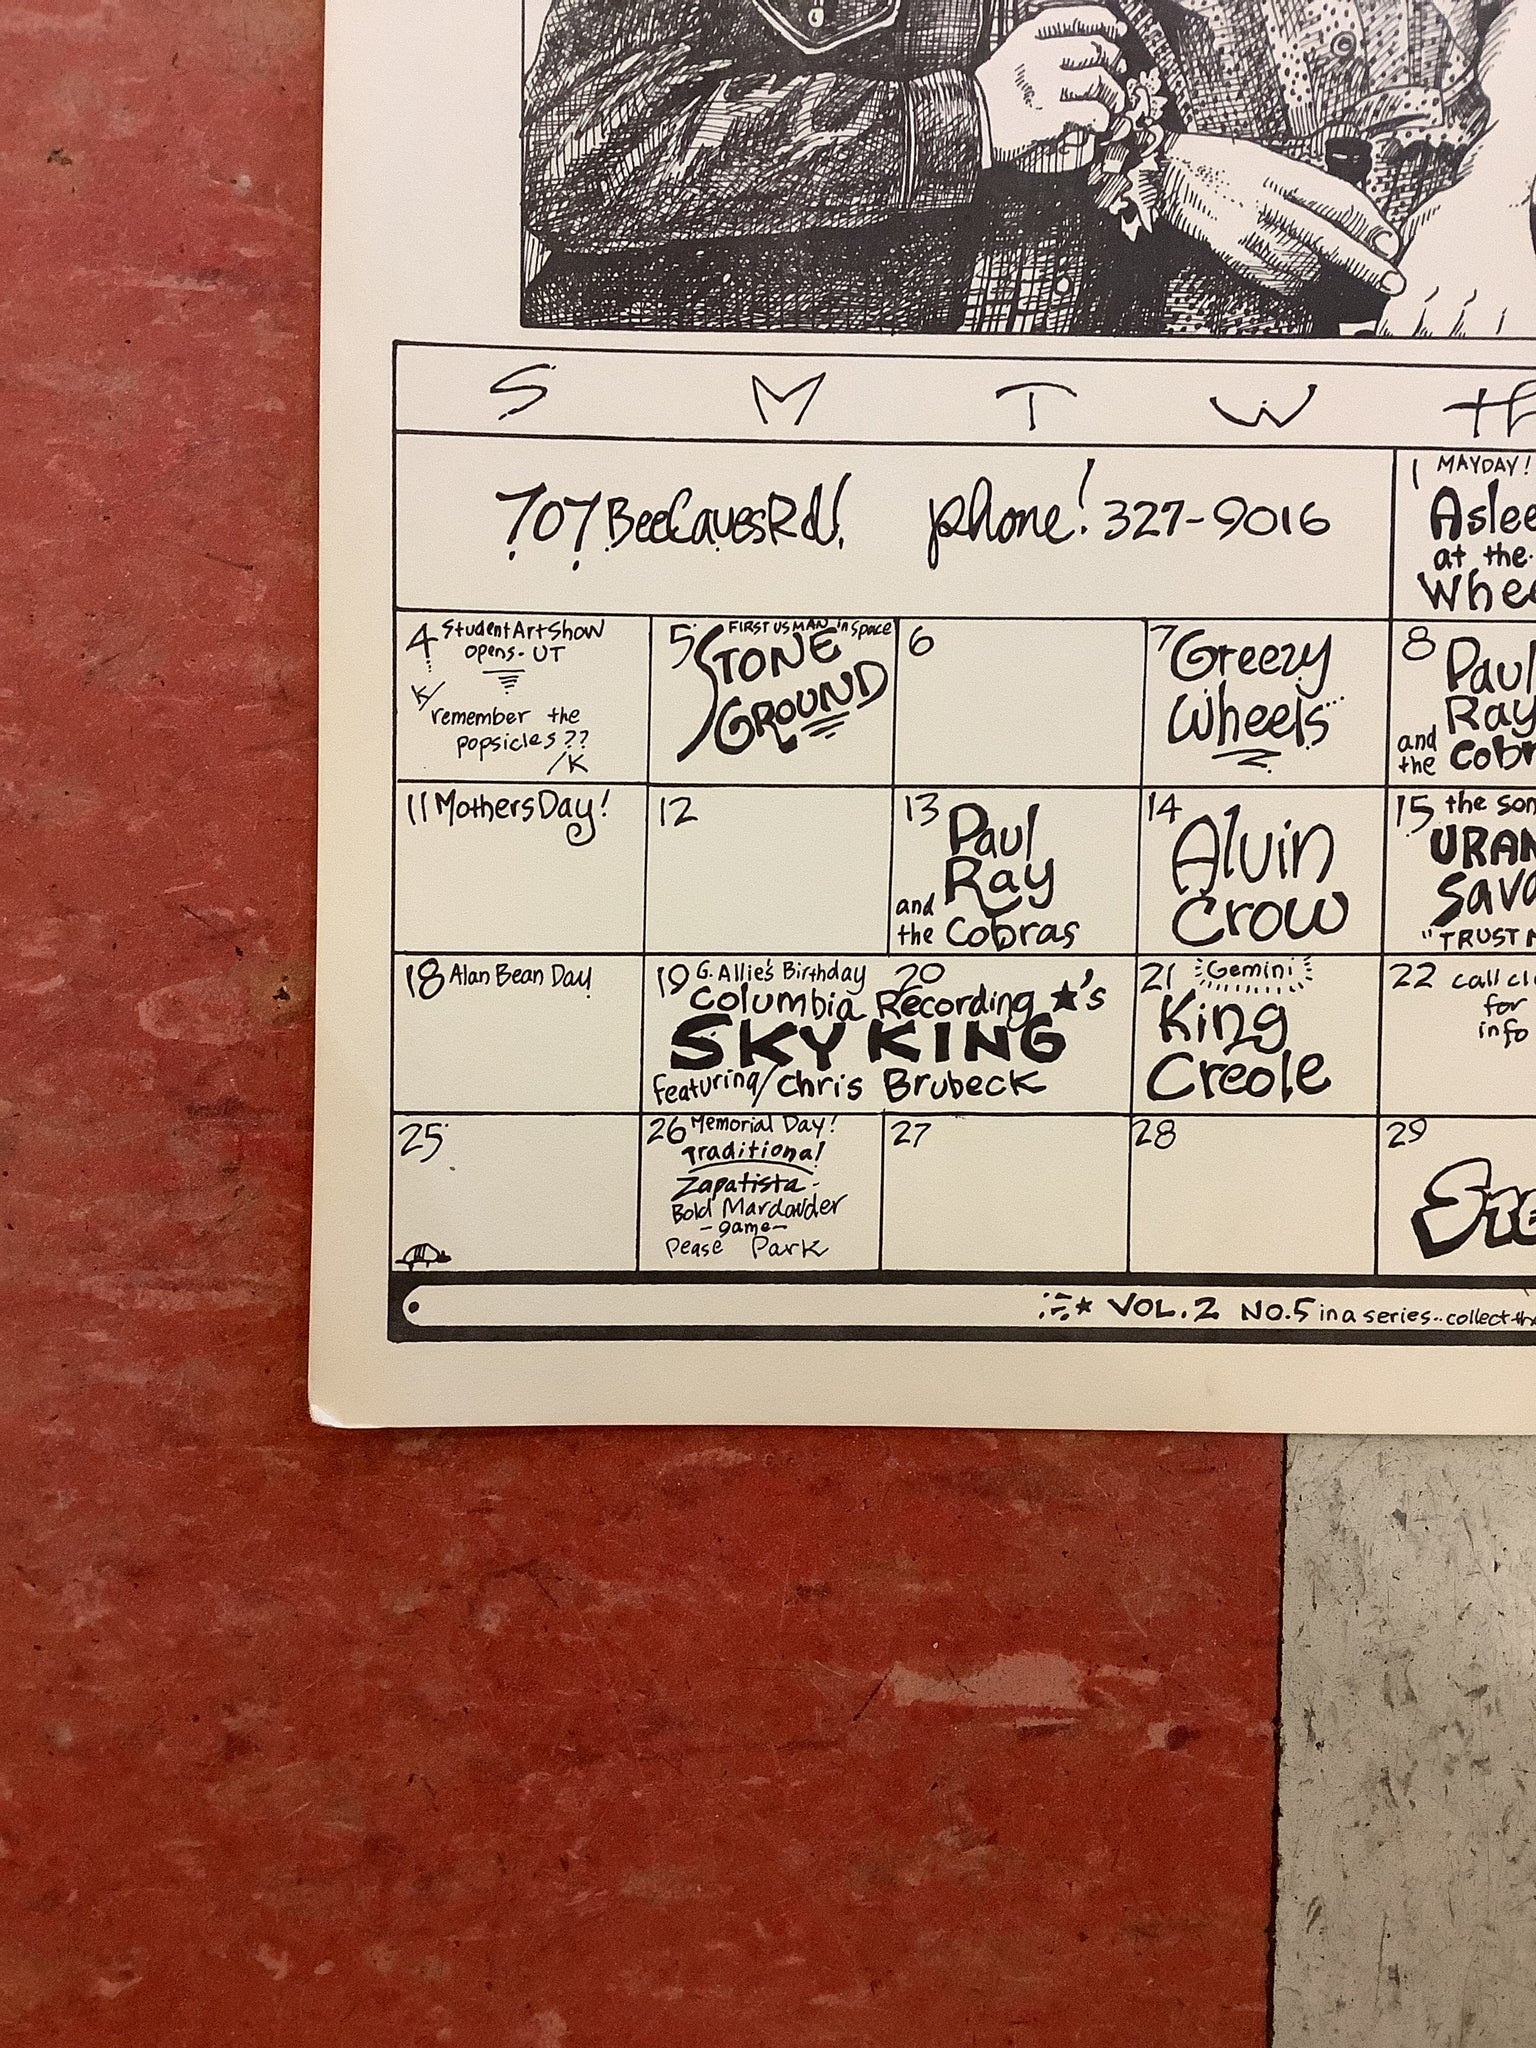 S M T W tH
707 Bee Caves Rd! phone! 327-9016
1 MAYDAY!
Aslee
at the
Whee
4 Student Art Show
opens - UT
K/
remember the
popsicles??
/K
5 FIRST US MAN in Space
STONE
GROUND
6
7 Greezy
Wheels
8 Paul
Ray
and
the Cobr
11 Mothers Day!
12
13 Paul
Ray
and
the Cobras
14 Alvin
Crow
15 the son
URAN
Sava
"TRUST M
18 Alan Bean Day
19 G. Allie's Birthday 20
Columbia Recording ★'s
SKY KING
featuring/Chris Brubeck
21 Gemini
King
Creole
22 call cl
for
info
25
26 Memorial Day!
Traditional
Zapatista -
Bold Mardauder
-game-
Pease Park
27
28
29
VOL. 2 NO. 5 in a series.. collect the